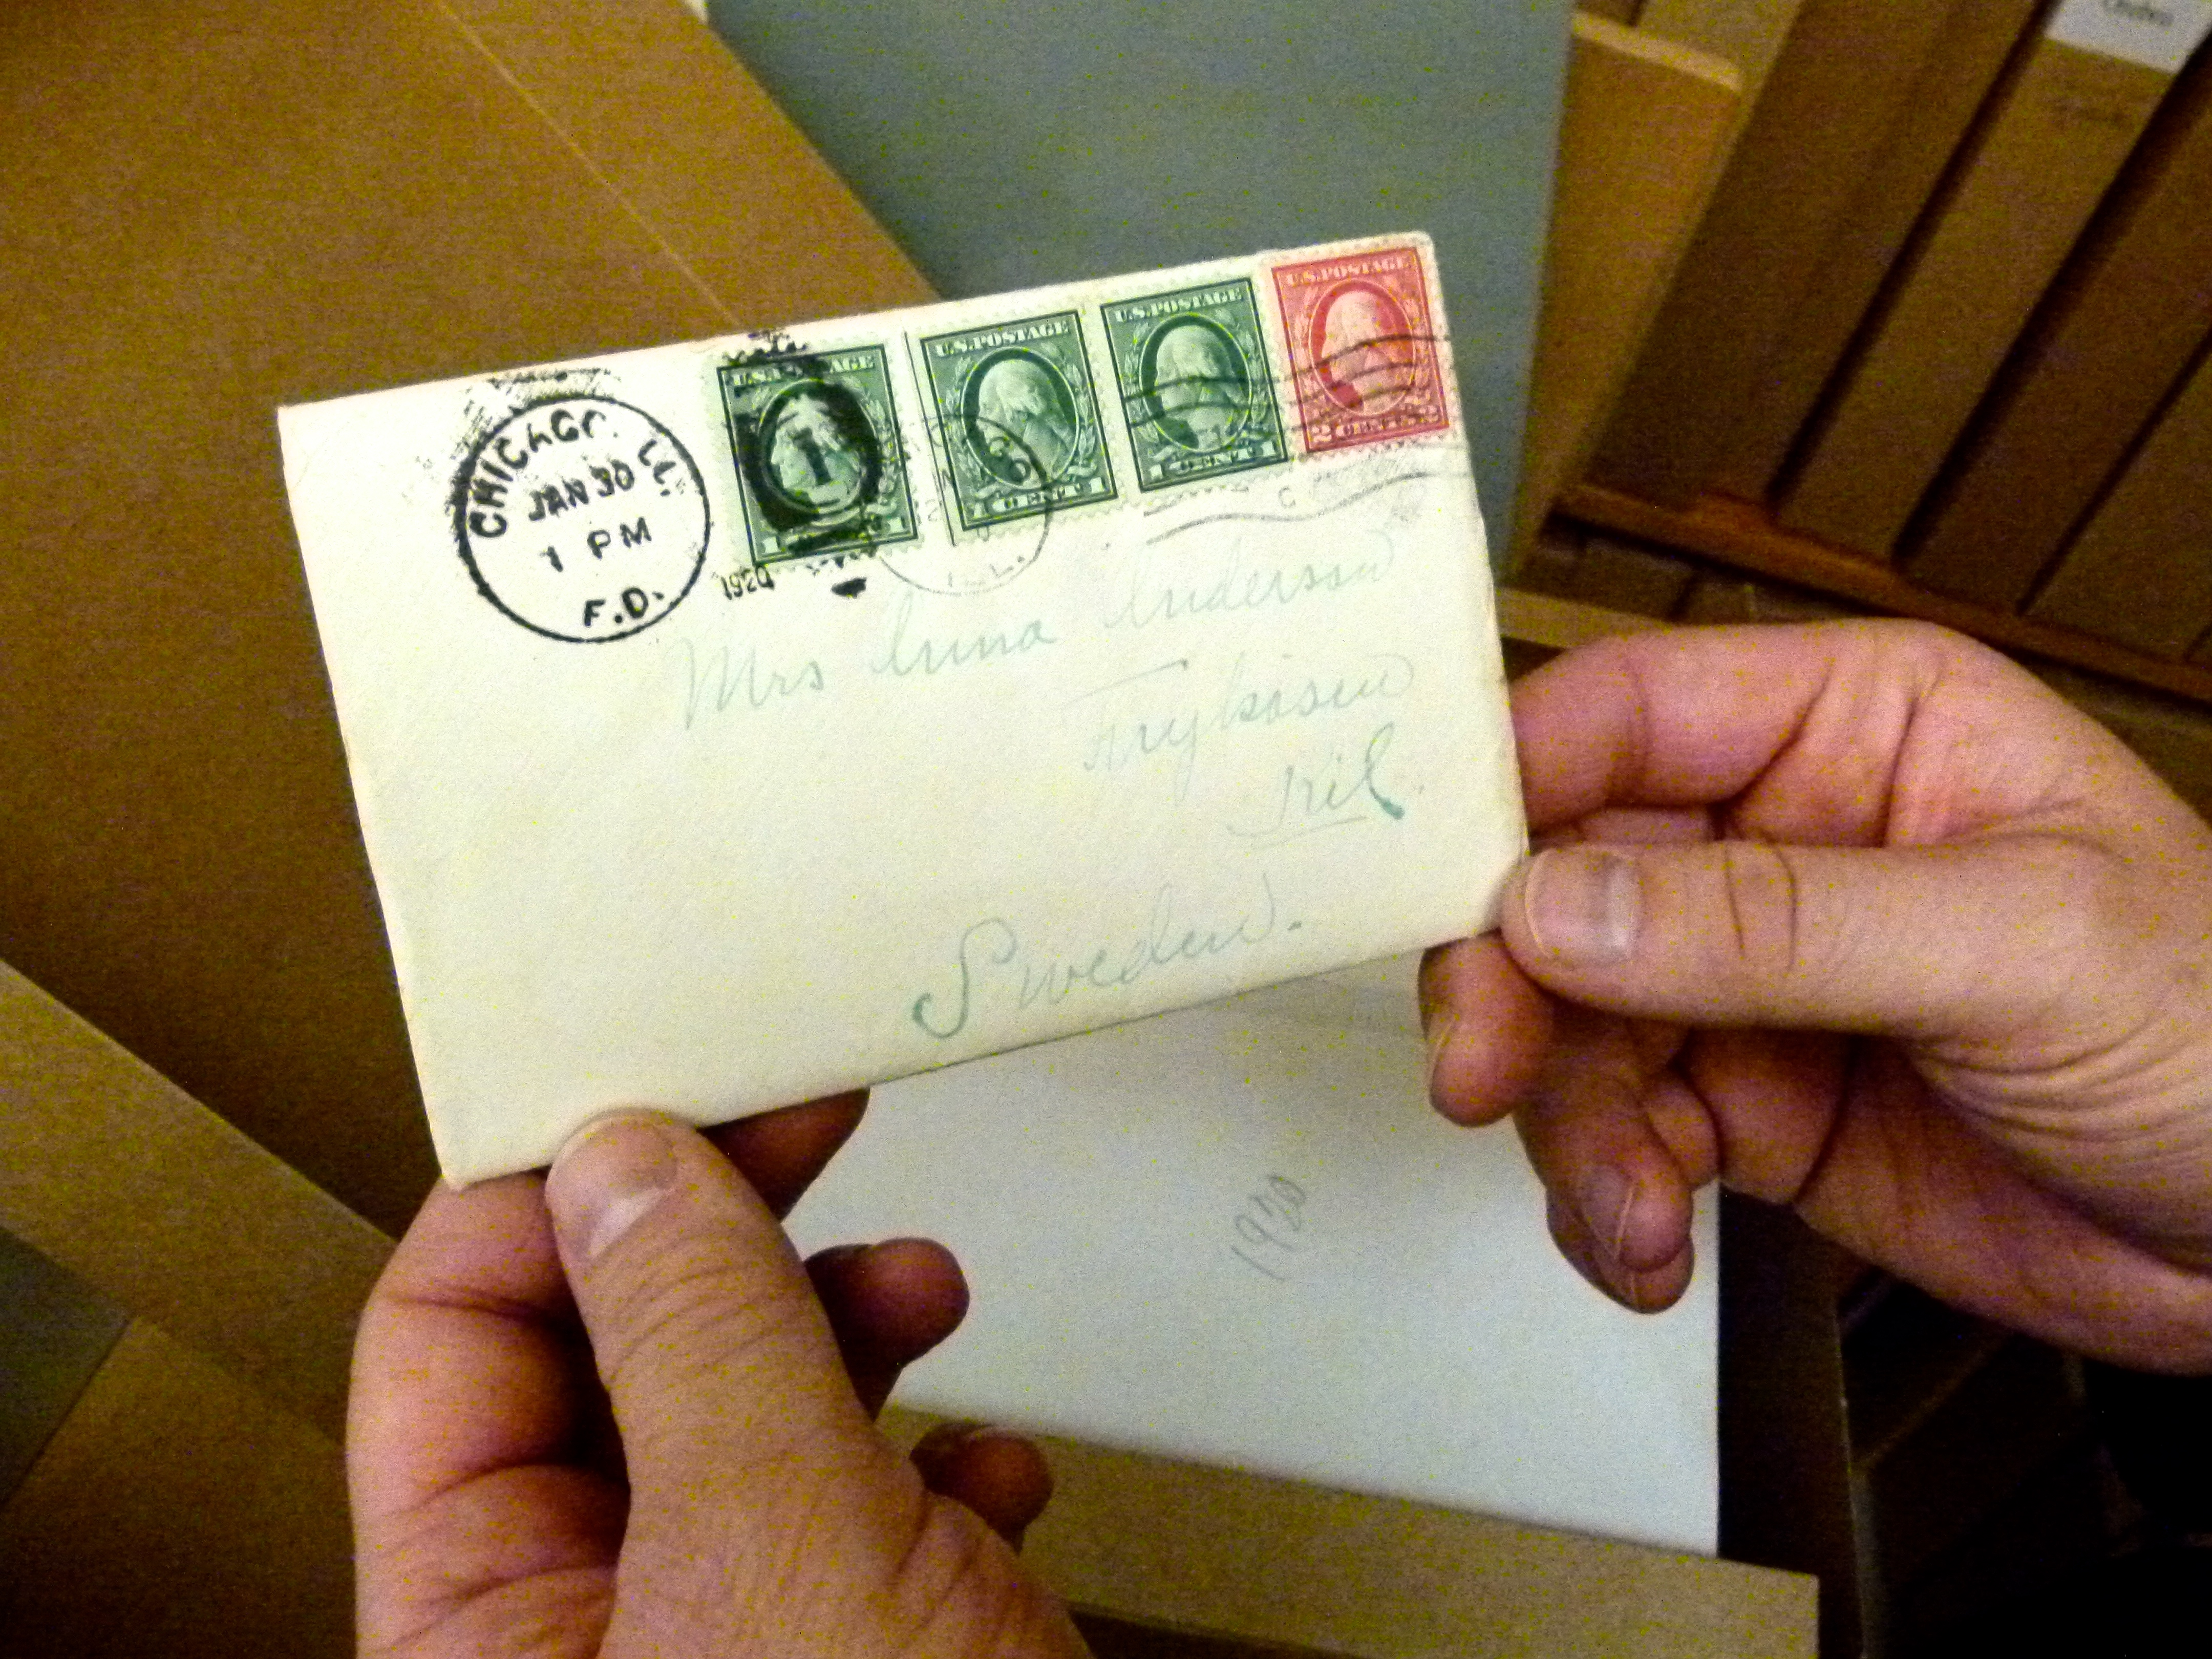 CHICAGO, ILL.
JAN 30
1 PM
F.D.
1920
U.S. POSTAGE
1 CENT 1
U.S. POSTAGE
1 CENT 1
U.S. POSTAGE
1 CENT 1
U.S. POSTAGE
2 CENTS 2
ILL.
Mrs Anna Anderson
Kil
Sweden.
1920